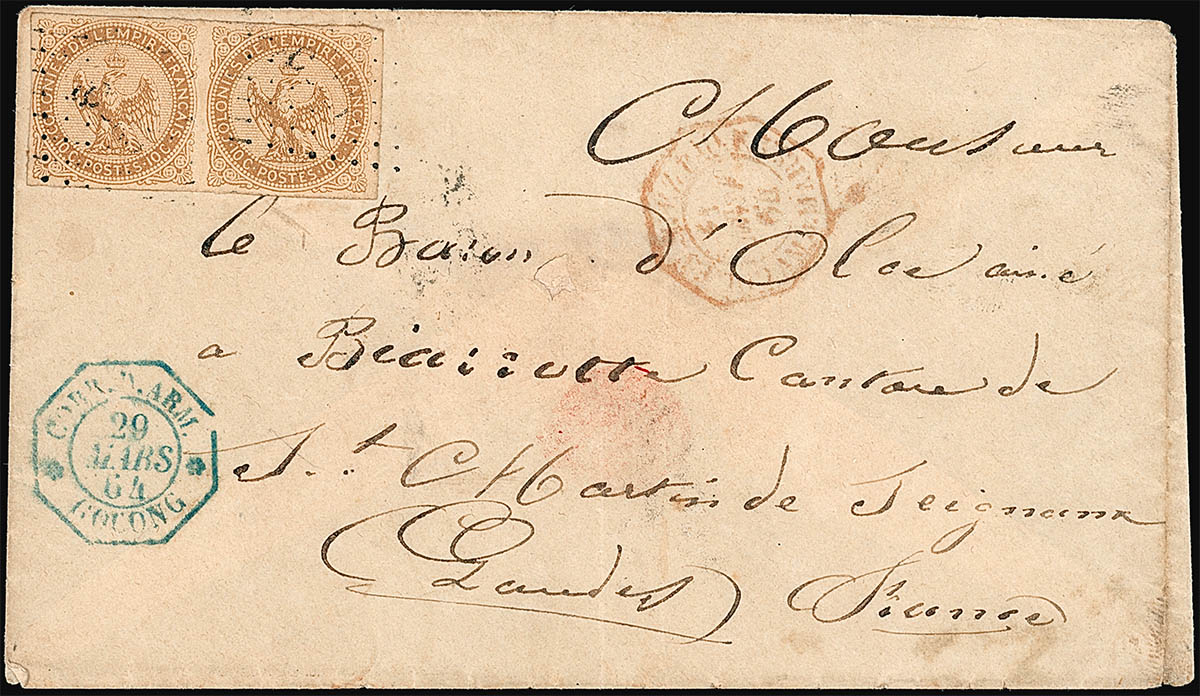 COLONIES DE L'EMPIRE FRANÇAIS
10C. POSTES 10C.
COLONIES DE L'EMPIRE FRANÇAIS
10C. POSTES 10C.
Monsieur
le Baron d'Olce ainé
a Biarrotte Canton de
St. Martin de Seignanx
(Landes) France
CORR. D. ARM.
29
MARS
64
GOCONG